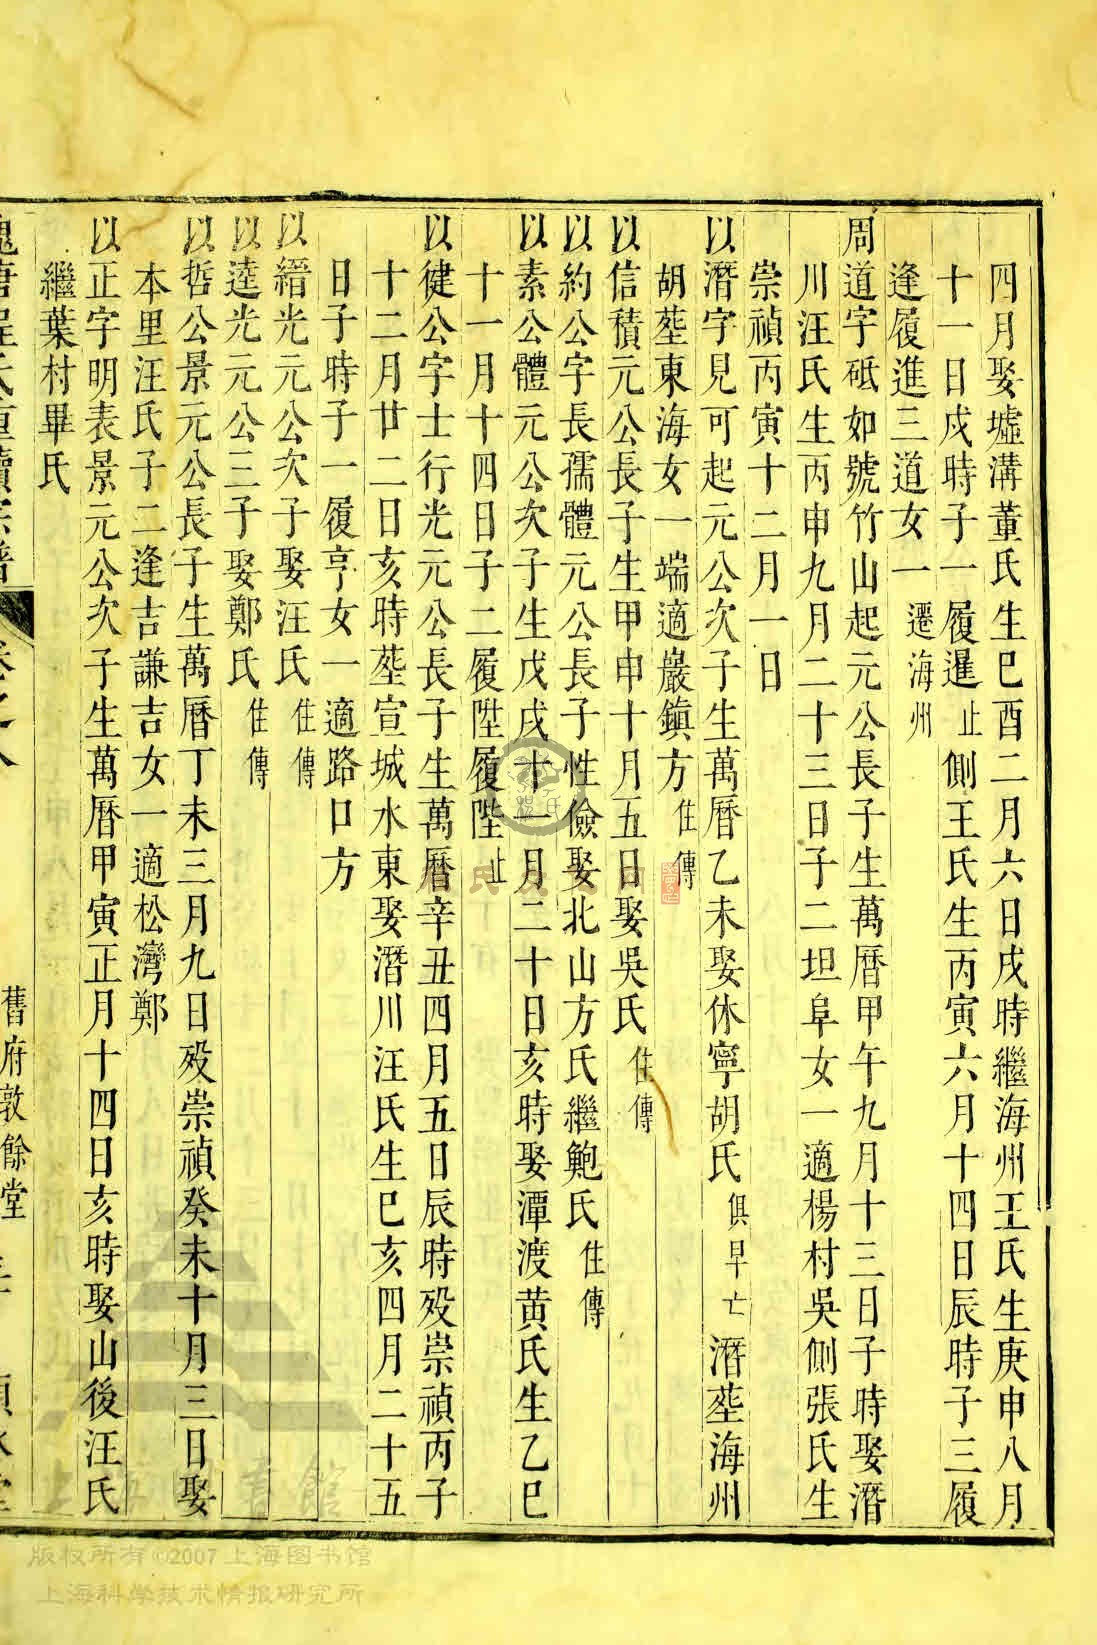 四月娶墟溝董氏生巳酉二月六日戌時繼海州王氏生庚申八月
十一日戌時子一履暹止側王氏生丙寅六月十四日辰時子三履
逢履進三道女一遷海州
周道字砥如號竹山起元公長子生萬曆甲午九月十三日子時娶潛
川汪氏生丙申九月二十三日子二坦阜女一適楊村吳側張氏生
崇禎丙寅十二月一日
以潛字見可起元公次子生萬曆乙未娶休寧胡氏俱早亡潛塟海州
胡塟東海女一端適巖鎮方住傳
以信積元公長子生甲申十月五日娶吳氏住傳
以約公字長孺體元公長子性儉娶北山方氏繼鮑氏住傳
以素公體元公次子生戊戌十一月二十日亥時娶潭渡黃氏生乙巳
十一月十四日子二履陞履陛止
以健公字士行光元公長子生萬曆辛丑四月五日辰時歿崇禎丙子
十二月廿二日亥時塟宣城水東娶潛川汪氏生巳亥四月二十五
日子時子一履亨女一適路口方
以縉光元公次子娶汪氏住傳
以逵光元公三子娶鄭氏住傳
以哲公景元公長子生萬曆丁未三月九日歿崇禎癸未十月三日娶
本里汪氏子二逢吉謙吉女一適松灣鄭
以正字明表景元公次子生萬曆甲寅正月十四日亥時娶山後汪氏
繼葉村畢氏
舊府敦餘堂
版权所有©2007上海图书馆
上海科学技术情报研究所